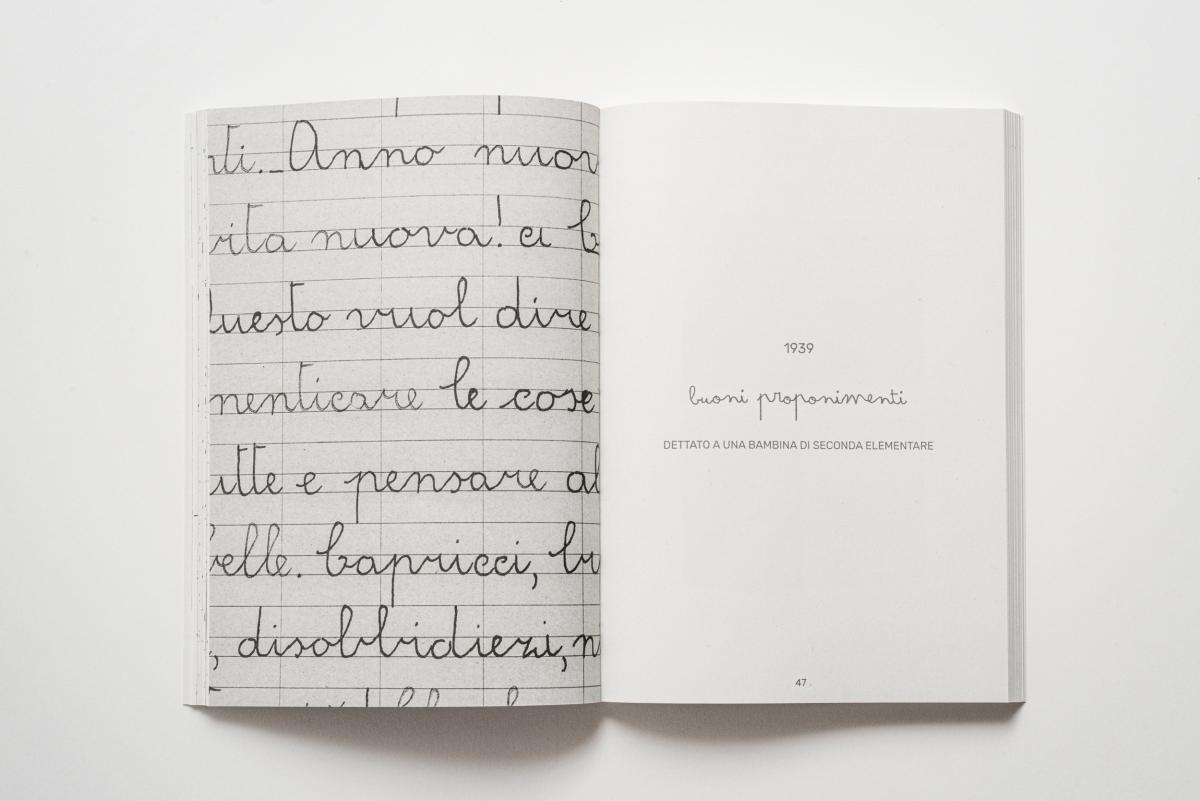 ti._Anno nuov
vita nuova! ci
uesto vuol dire
menticare le cose
utte e pensare al
elle. Capricci, bu
, disobbidiezi, n
1939
buoni proponimenti
DETTATO A UNA BAMBINA DI SECONDA ELEMENTARE
47